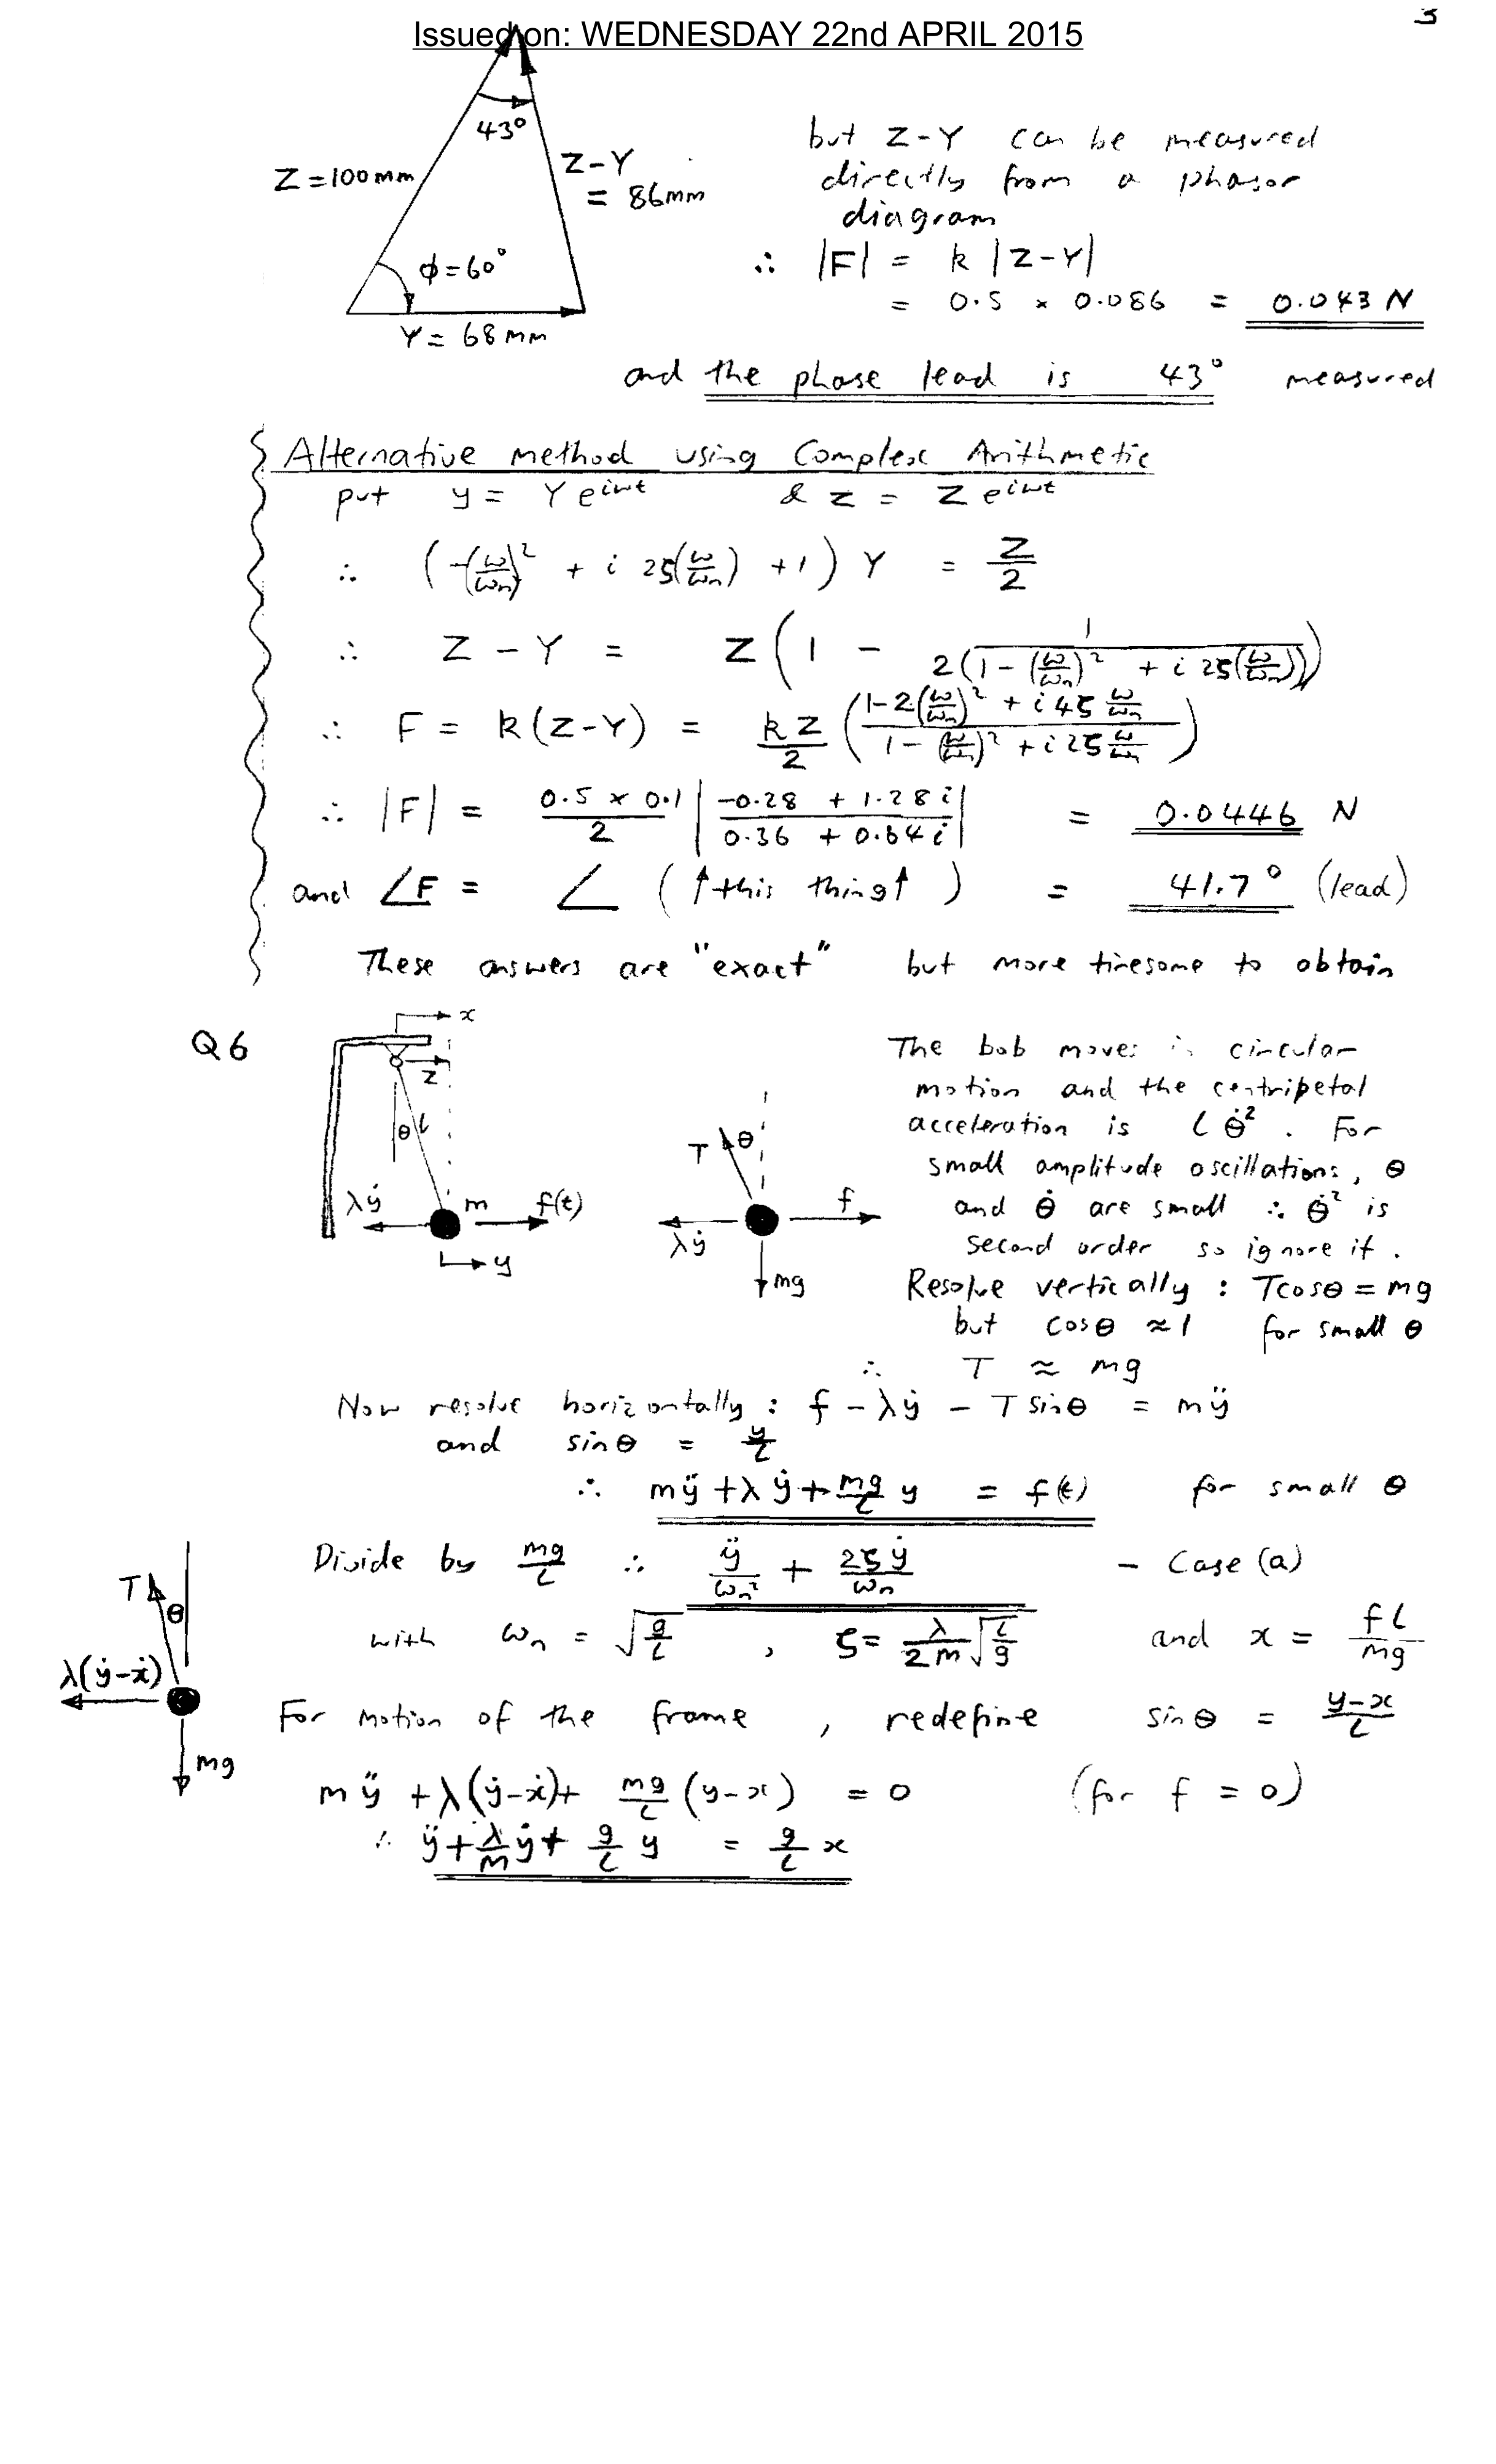 Issued on: WEDNESDAY 22nd APRIL 2015
3
43°
Z = 100mm
Z-Y
= 86mm
φ = 60°
Y = 68mm
but Z-Y can be measured
directly from a phasor
diagram
∴ |F| = k |Z-Y|
= 0.5 × 0.086 = 0.043 N
and the phase lead is 43° measured
Alternative method using Complex Arithmetic
put y = Y e^{iωt} & z = Z e^{iωt}
∴ (-(ω/ωn)² + i 2ζ(ω/ωn) + 1) Y = Z/2
∴ Z - Y = Z (1 - 1/(2(1-(ω/ωn)² + i 2ζ(ω/ωn))))
∴ F = k(Z-Y) = kZ/2 ((1-2(ω/ωn)² + i4ζ ω/ωn)/(1-(ω/ωn)² + i2ζ ω/ωn))
∴ |F| = (0.5 × 0.1)/2 |(-0.28 + 1.28i)/(0.36 + 0.64i)| = 0.0446 N
and ∠F = ∠ (↑this thing↑) = 41.7° (lead)
These answers are "exact" but more tiresome to obtain
Q6
x
z
θ
l
λẏ
m
f(t)
y
T
θ
f
λẏ
mg
The bob moves in circular
motion and the centripetal
acceleration is l θ̇². For
small amplitude oscillations, θ
and θ̇ are small ∴ θ̇² is
second order so ignore it.
Resolve vertically : Tcosθ = mg
but cosθ ≈ 1 for small θ
∴ T ≈ mg
Now resolve horizontally : f - λẏ - T sinθ = mÿ
and sinθ = y/l
∴ mÿ + λẏ + mg/l y = f(t) for small θ
Divide by mg/l ∴ ÿ/ωn² + 2ζẏ/ωn - Case (a)
with ωn = √(g/l) , ζ = λ/2m √(l/g) and x = fl/mg
T
θ
λ(ẏ-ẋ)
mg
For motion of the frame , redefine sinθ = (y-x)/l
mÿ + λ(ẏ-ẋ)+ mg/l (y-x) = 0 (for f = 0)
∴ ÿ + λ/m ẏ + g/l y = g/l x